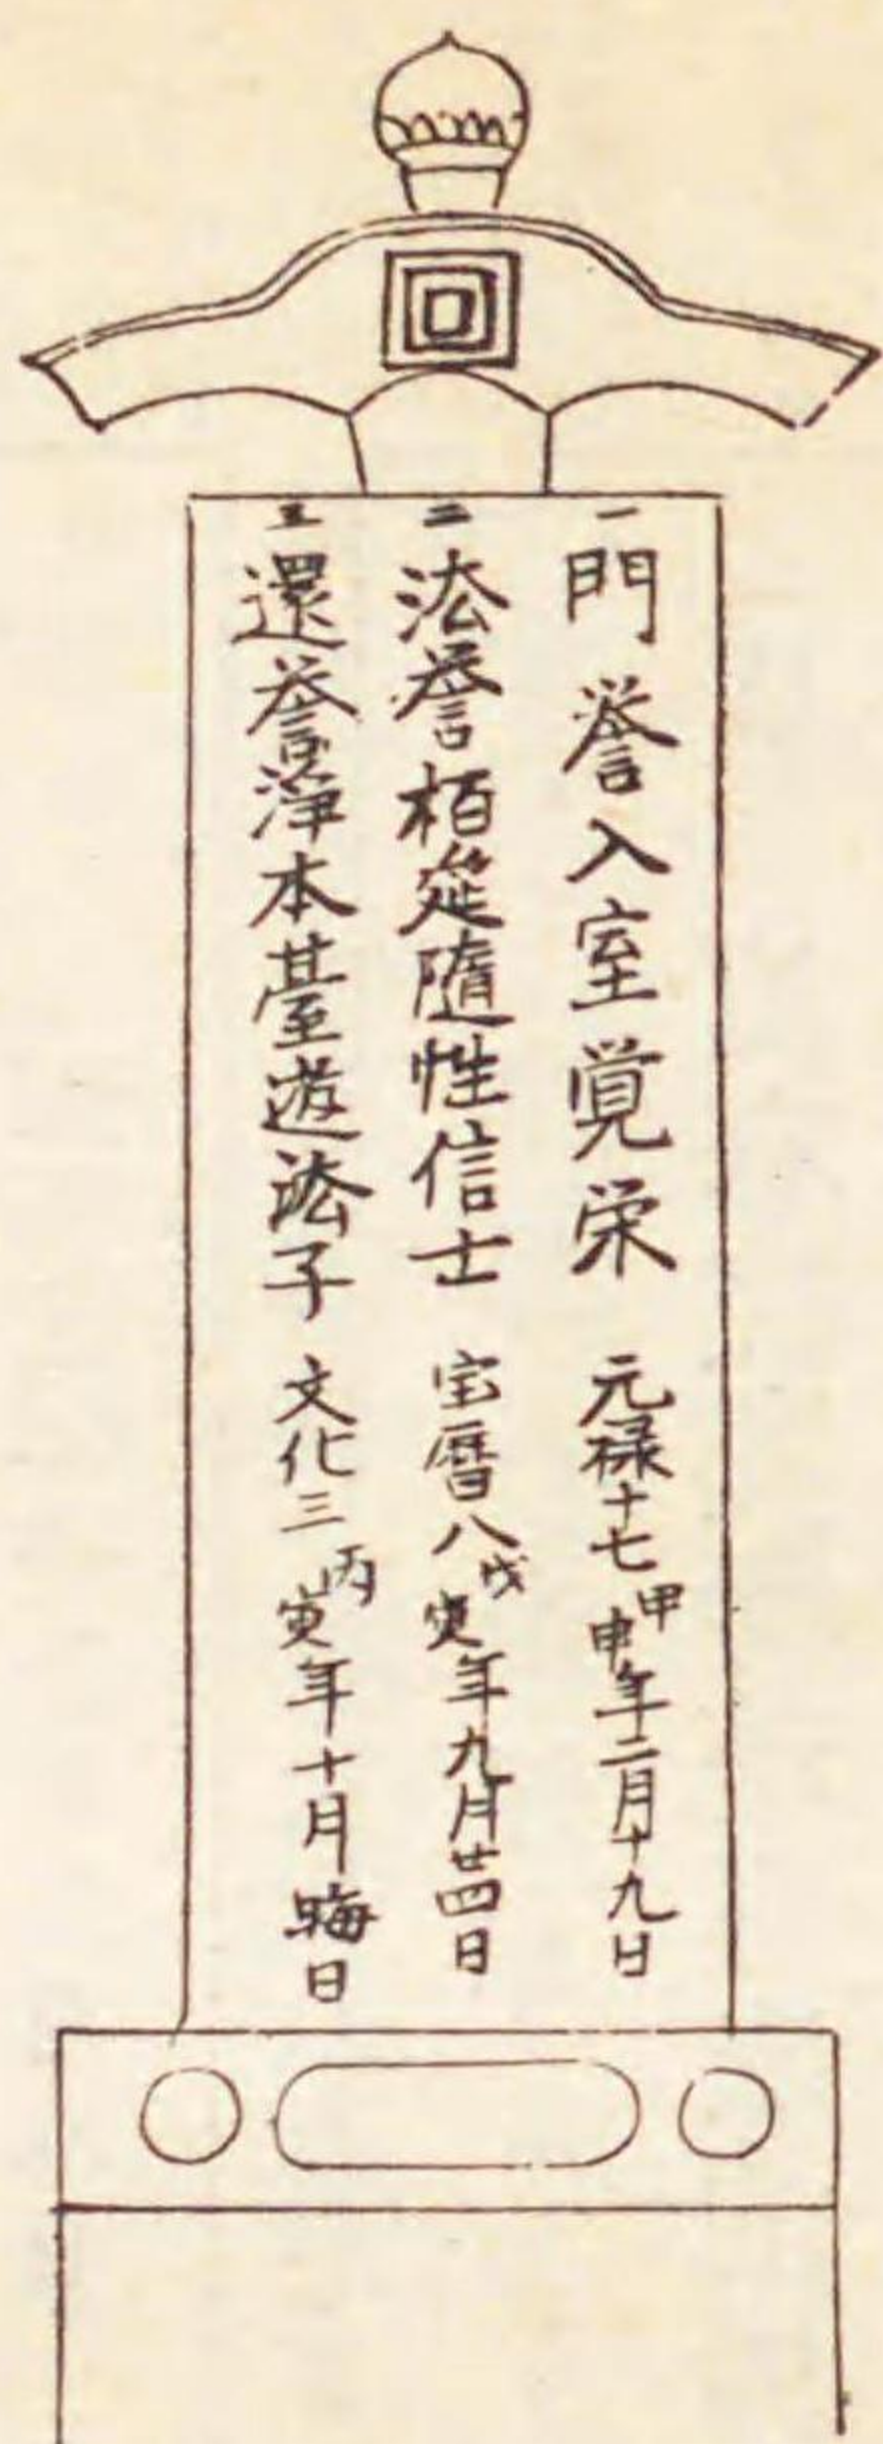 一 門誉入室覚栄 元禄十七甲申年二月十九日
二 法誉栢莚随性信士 宝暦八戊寅年九月廿四日
三 還誉浄本臺遊法子 文化三丙寅年十月晦日